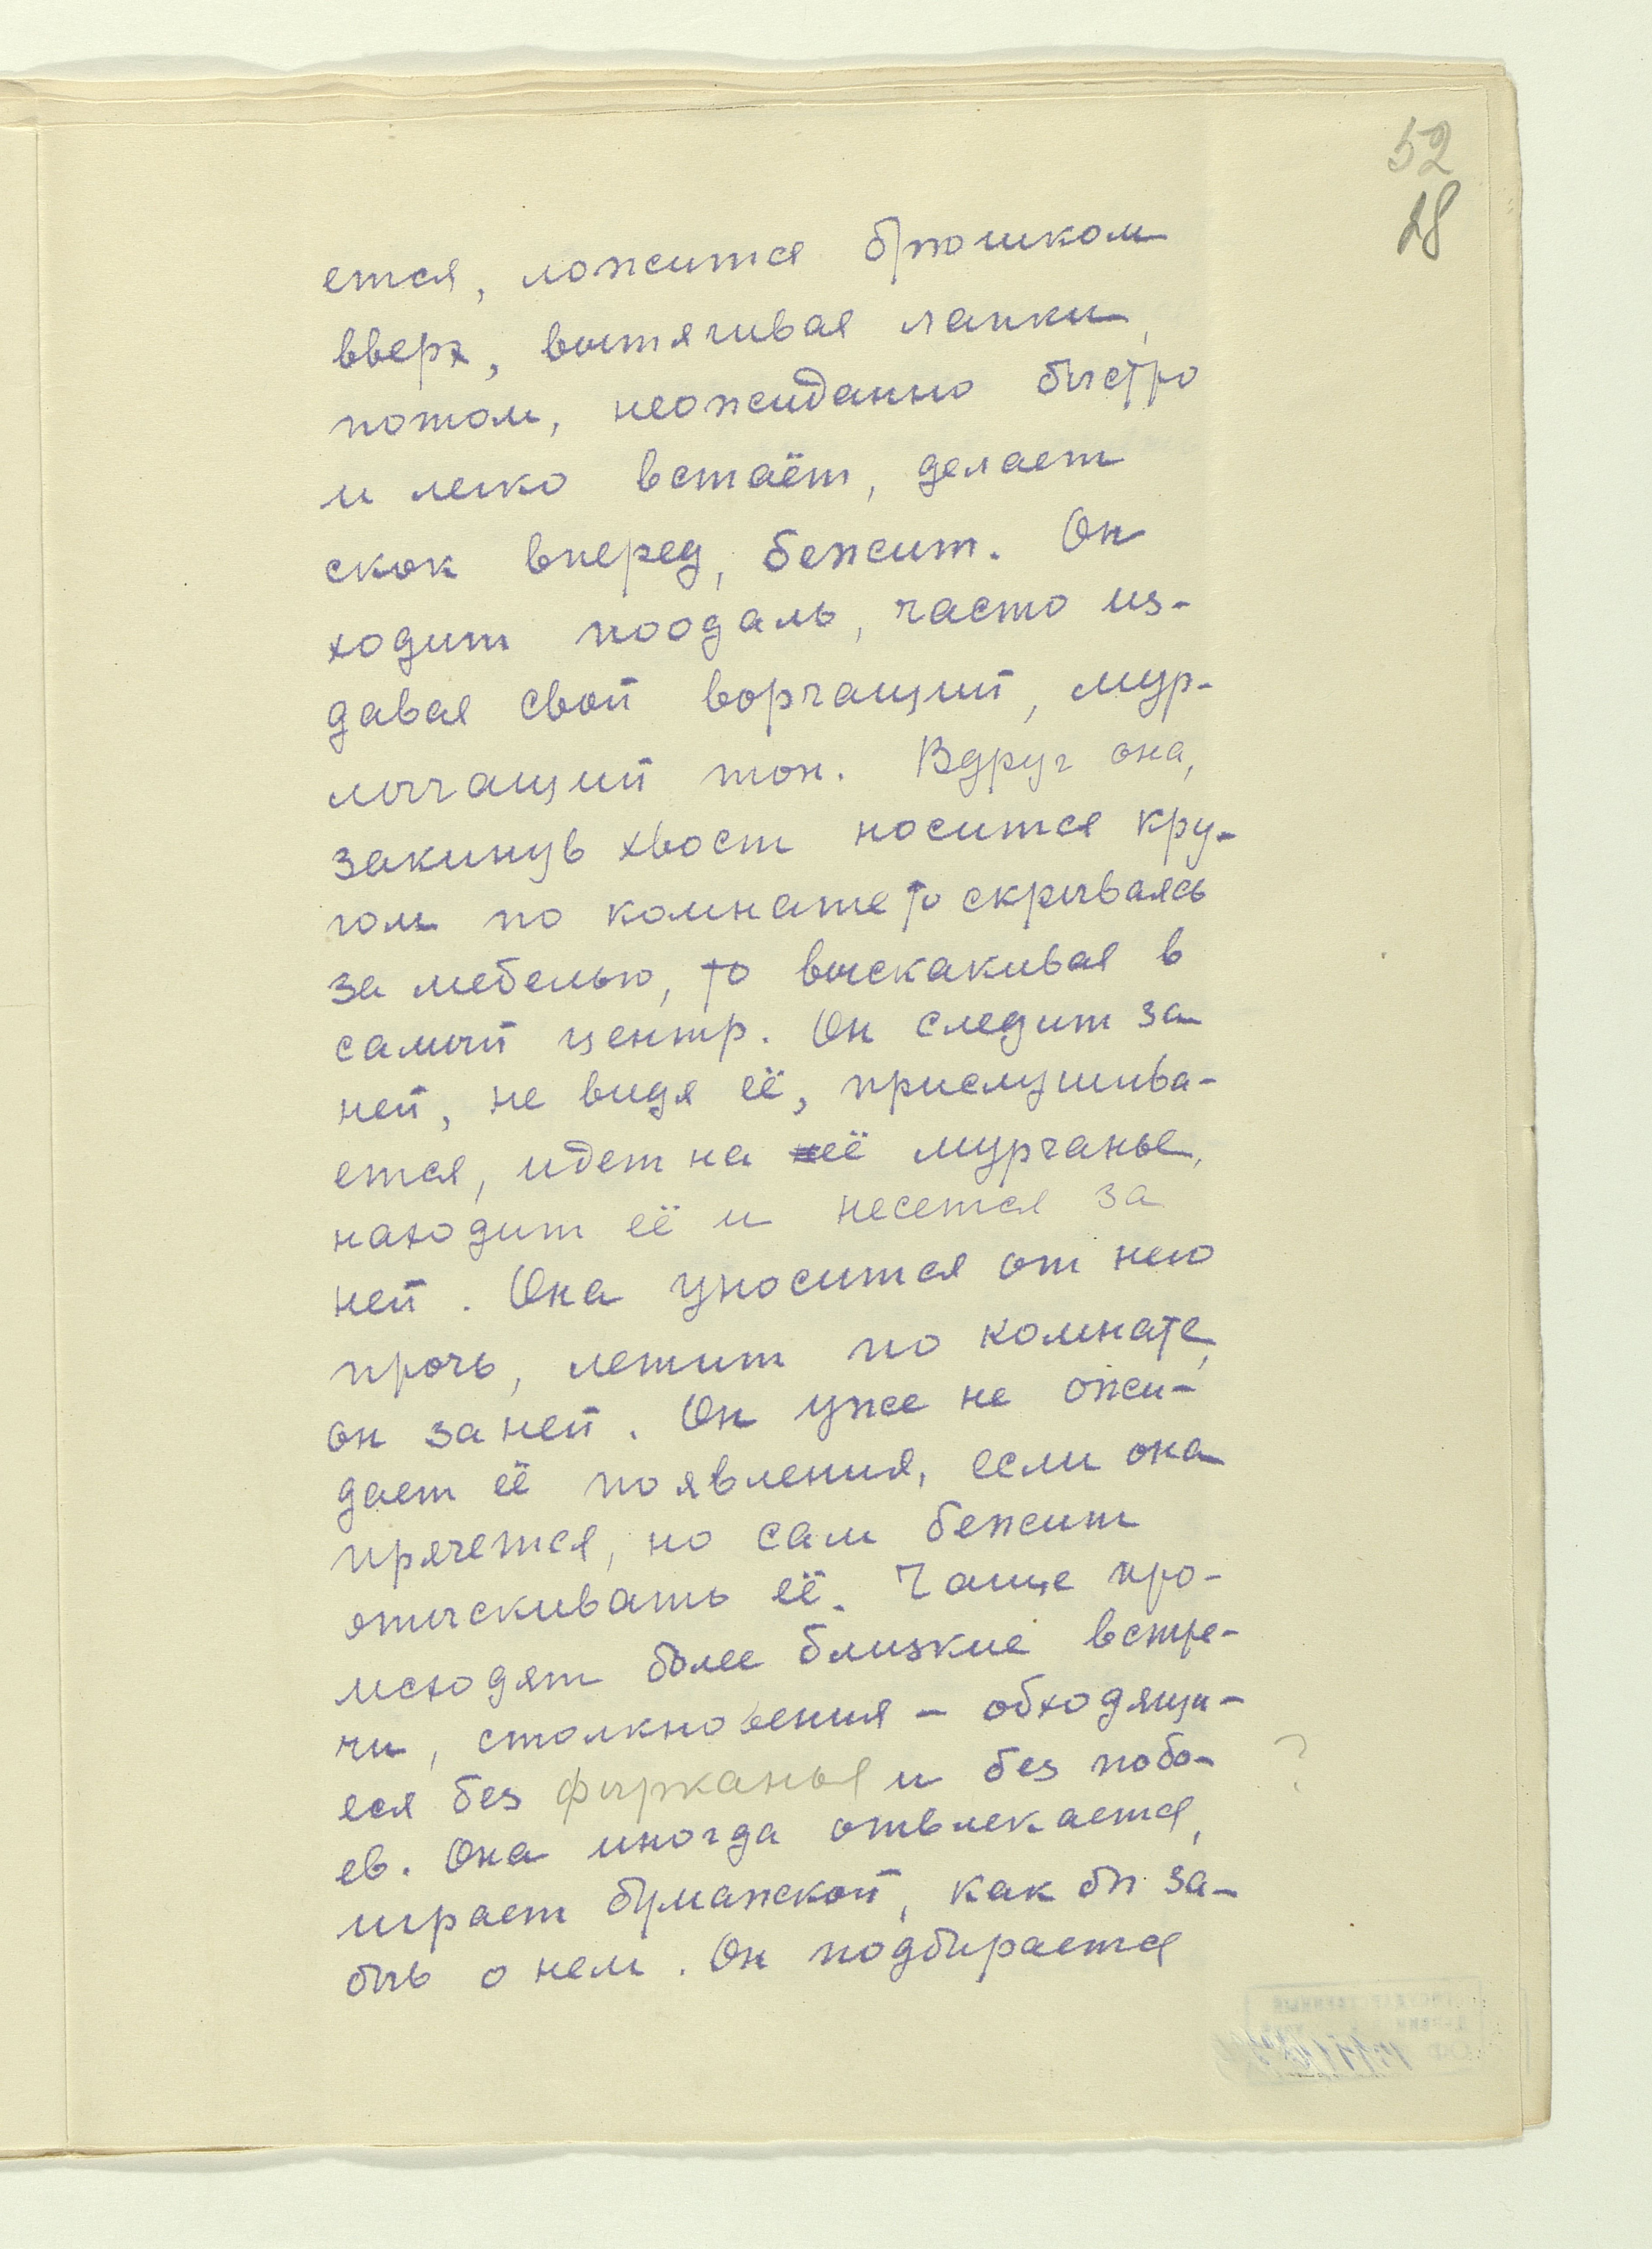 52
28
ется, ложится брюшком
вверх, вытягивая лапки,
потом, неожиданно быстро
и легко встаёт, делает
скок вперед, бежит. Он
ходит поодаль, часто из-
давая свой ворчащий, мур-
лычащий тон. Вдруг она,
закинув хвост носится кру-
гом по комнате то скрываясь
за мебелью, то выскакивая в
самый центр. Он следит за
ней, не видя её, прислушива-
ется, идет на её мурчанье,
находит её и несется за
ней. Она уносится от него
прочь, летит по комнате,
он за ней. Он уже не ожи-
дает её появления, если она
прячется, но сам бежит
отыскивать её. Чаще про-
исходят более близкие встре-
чи, столкновения - обходящи-
еся без фырканья и без побо-
?
ев. Она иногда отвлекается,
играет бумажкой, как бы за-
быв о нем. Он подбирается